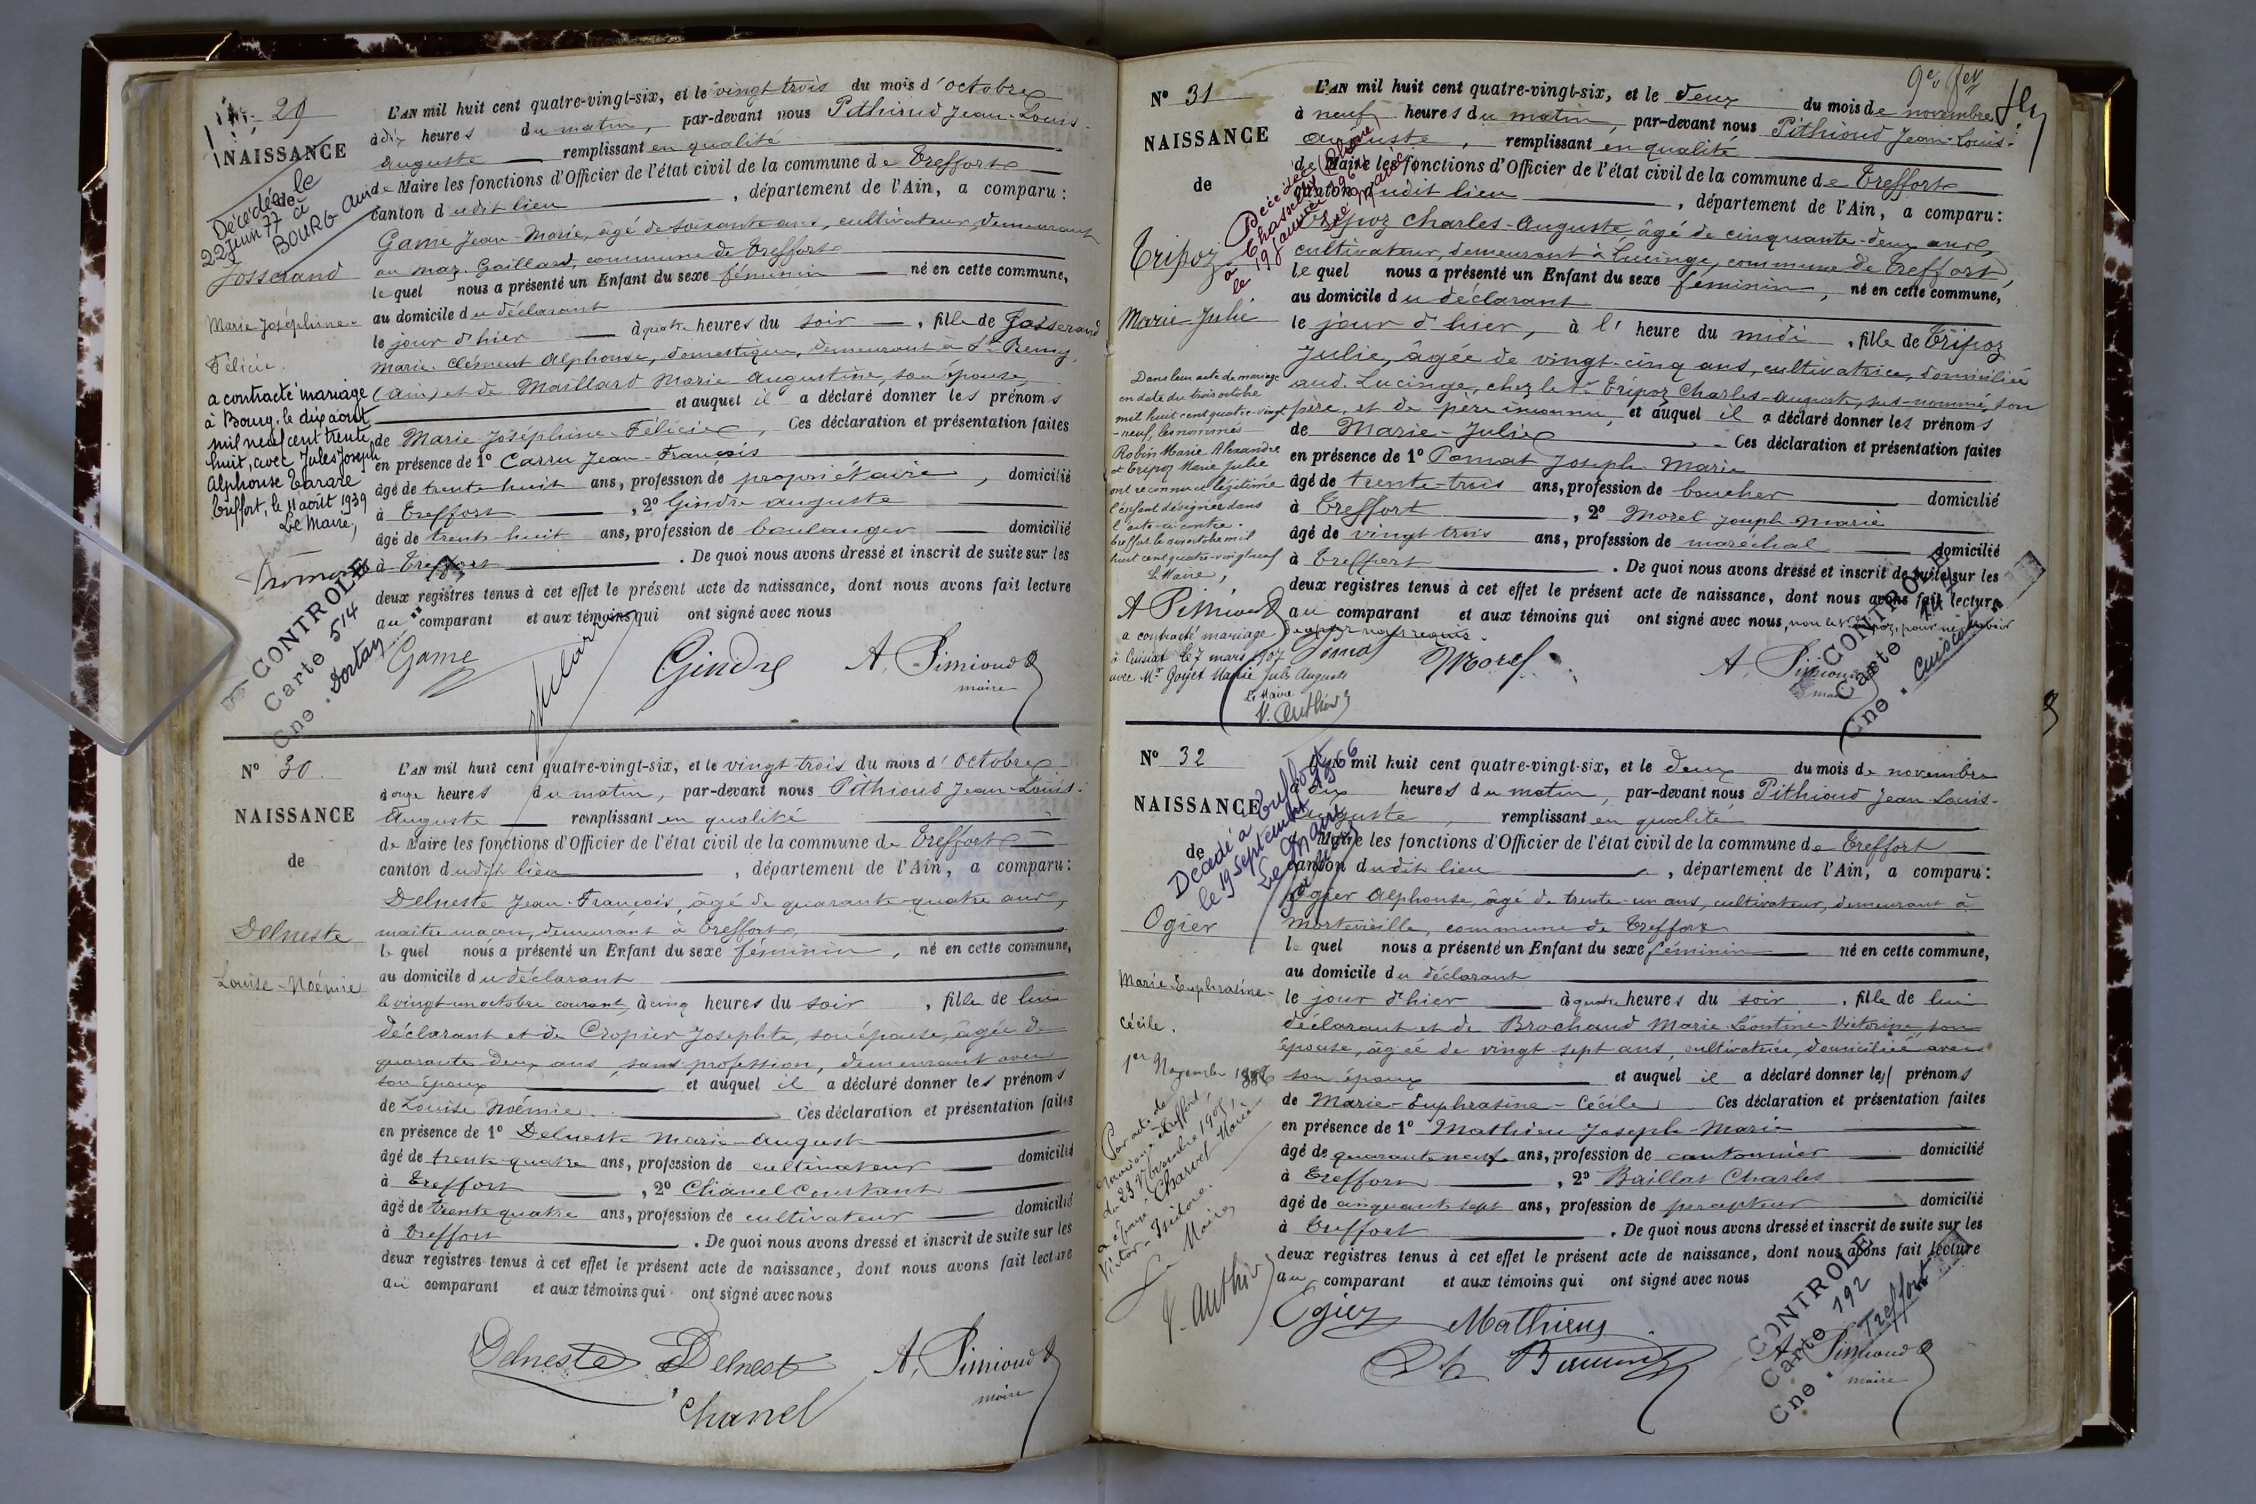 N° 29
NAISSANCE
de
Décédée le
22 Juin 77 à
BOURG
Josserand
Marie Joséphine-
Félicie.
a contracté mariage
à Bourg, le dix août
mil neuf cent trente
huit, avec Jules Joseph
Alphonse Tarare
Treffort, le 11 août 1939
Le Maire,
CONTROLE
Carte 514
Cne. Dortan
L'AN mil huit cent quatre-vingt-six, et le vingt trois du mois d'octobre
à dix heures du matin, par-devant nous Pithioud Jean-Louis-
Auguste remplissant en qualité
de Maire les fonctions d'Officier de l'état civil de la commune de Treffort
canton dudit lieu, département de l'Ain, a comparu:
Game Jean-Marie, âgé de soixante ans, cultivateur, demeurant
au Mas Gaillard, commune de Treffort
lequel nous a présenté un Enfant du sexe féminin né en cette commune,
au domicile du déclarant
le jour d'hier à quatre heures du soir, fille de Josserand
Marie Clément Alphonse, domestique, demeurant à St Remy,
(Ain) et de Maillard Marie Augustine, son épouse,
et auquel il a déclaré donner les prénoms
de Marie Joséphine-Félicie, Ces déclaration et présentation faites
en présence de 1° Carru Jean-François
âgé de trente huit ans, profession de propriétaire, domicilié
à Treffort, 2° Gindre Auguste
âgé de trente-huit ans, profession de boulanger domicilié
à Treffort. De quoi nous avons dressé et inscrit de suite sur les
deux registres tenus à cet effet le présent acte de naissance, dont nous avons fait lecture
au comparant et aux témoins qui ont signé avec nous
Game
Gindre
A. Pithioud
maire
N° 30
NAISSANCE
de
Delneste
Louise-Noémie
L'AN mil huit cent quatre-vingt-six, et le vingt trois du mois d'octobre
à onze heures du matin, par-devant nous Pithioud Jean-Louis-
Auguste remplissant en qualité
de Maire les fonctions d'Officier de l'état civil de la commune de Treffort
canton dudit lieu, département de l'Ain, a comparu:
Delneste Jean-François, âgé de quarante-quatre ans,
maître maçon, demeurant à Treffort,
lequel nous a présenté un Enfant du sexe féminin, né en cette commune,
au domicile du déclarant
le vingt un octobre courant, à cinq heures du soir, fille de lui
déclarant et de Cropier Josephte, son épouse, âgée de
quarante deux ans, sans profession, demeurant avec
son époux et auquel il a déclaré donner les prénoms
de Louise Noémie. Ces déclaration et présentation faites
en présence de 1° Delneste Marie-Auguste
âgé de trente quatre ans, profession de cultivateur domicilié
à Treffort, 2° Chanel Constant
âgé de trente quatre ans, profession de cultivateur domicilié
à Treffort. De quoi nous avons dressé et inscrit de suite sur les
deux registres tenus à cet effet le présent acte de naissance, dont nous avons fait lecture
au comparant et aux témoins qui ont signé avec nous
Delneste Delneste A. Pithioud
Chanel maire
N° 31
NAISSANCE
de
Décédée
à Chasselay (Rhône)
le 19 janvier 196
Tripoz
Marie-Julie
Dans leur acte de mariage
en date du trois octobre
mil huit cent quatre-vingt
-neuf, les nommés
Robin Marie Alexandre
et Tripoz Marie Julie
ont reconnu et légitimé
l'enfant désignée dans
l'acte ci-contre.
Treffort le octobre mil
huit cent quatre-vingt neuf
Le Maire,
A Pithioud
a contracté mariage
à Cuisiat le 7 mars 1907
avec Mr Goyet Marie Jules Auguste
Le Maire
V. Authier
L'AN mil huit cent quatre-vingt-six, et le deux du mois de novembre
à neuf heures du matin, par-devant nous Pithioud Jean-Louis-
Auguste, remplissant en qualité
de Maire les fonctions d'Officier de l'état civil de la commune de Treffort
canton dudit lieu, département de l'Ain, a comparu:
Tripoz Charles-Auguste âgé de cinquante-deux ans,
cultivateur, demeurant à Lucinge, commune de Treffort,
lequel nous a présenté un Enfant du sexe féminin, né en cette commune,
au domicile du déclarant
le jour d'hier, à l'heure du midi, fille de Tripoz
Julie, âgée de vingt-cinq ans, cultivatrice, domiciliée
aud. Lucinge, chez le Sr Tripoz Charles-Auguste, sus-nommé, son
père, et de père inconnu, et auquel il a déclaré donner les prénoms
de Marie-Julie Ces déclaration et présentation faites
en présence de 1° Pomat Joseph-Marie
âgé de trente-trois ans, profession de boucher domicilié
à Treffort, 2° Morel Joseph-Marie
âgé de vingt trois ans, profession de maréchal domicilié
à Treffort. De quoi nous avons dressé et inscrit de suite sur les
deux registres tenus à cet effet le présent acte de naissance, dont nous avons fait lecture
au comparant et aux témoins qui ont signé avec nous,
Pomat Morel A. Pithioud
maire
CONTROLE
Carte
Cne.
N° 32
NAISSANCE
de
Décédé à Treffort
le 19 septembre 1966
Le Maire
Ogier
Marie-Euphrasine-
Cécile.
1er Novembre 1886
Par acte de
mariage Treffort,
du 23 Novembre 1905,
a épousé Charvet Marie
Victor-Isidore.
Le Maire,
V. Authier
L'AN mil huit cent quatre-vingt-six, et le deux du mois de novembre
à dix heures du matin, par-devant nous Pithioud Jean-Louis-
Auguste, remplissant en qualité
de Maire les fonctions d'Officier de l'état civil de la commune de Treffort
canton dudit lieu, département de l'Ain, a comparu:
Ogier Alphonse, âgé de trente-un ans, cultivateur, demeurant à
Montevieille, commune de Treffort
lequel nous a présenté un Enfant du sexe féminin né en cette commune,
au domicile du déclarant
le jour d'hier à quatre heures du soir, fille de lui
déclarant et de Brochand Marie-Léontine-Victorine, son
épouse, âgée de vingt sept ans, cultivatrice, domiciliée avec
son époux et auquel il a déclaré donner les prénoms
de Marie-Euphrasine-Cécile Ces déclaration et présentation faites
en présence de 1° Mathieu Joseph-Marie
âgé de quarante neuf ans, profession de cantonnier domicilié
à Treffort, 2° Baillat Charles
âgé de cinquante sept ans, profession de percepteur domicilié
à Treffort. De quoi nous avons dressé et inscrit de suite sur les
deux registres tenus à cet effet le présent acte de naissance, dont nous avons fait lecture
au comparant et aux témoins qui ont signé avec nous
Ogier Mathieu
A. Pithioud
maire
CONTROLE
Carte 192
Cne. Treffort